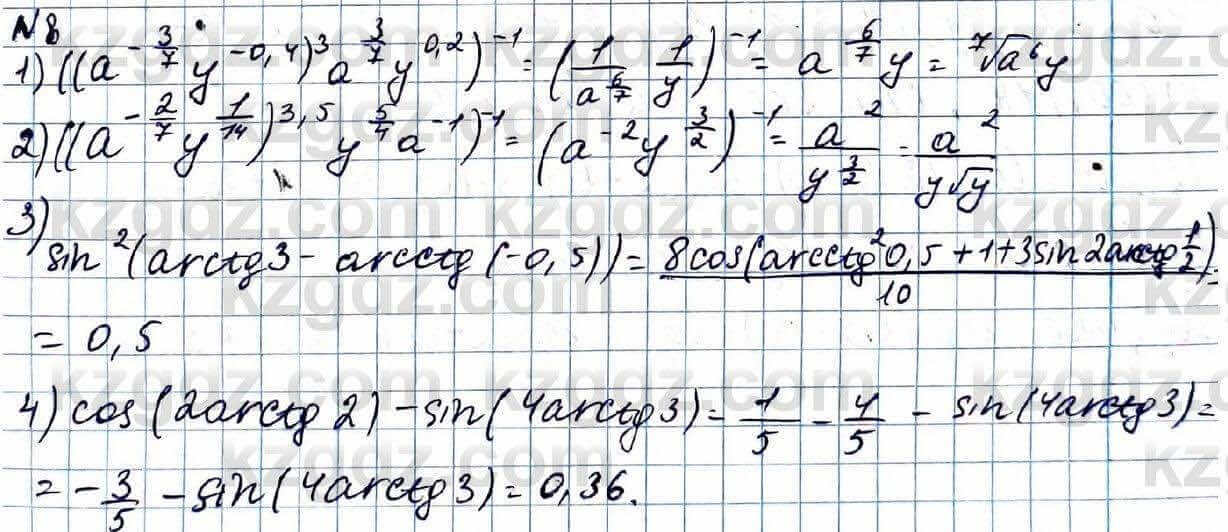 №8
1) ((a^{-3/7} y^{-0,4})^3 a^{3/7} y^{0,2})^{-1} = (1/a^{6/7} 1/y)^{-1} = a^{6/7} y = ⁷√a⁶ y
2) ((a^{-2/7} y^{1/14})^{3,5} y^{5/4} a^{-1})^{-1} = (a^{-2} y^{3/2})^{-1} = a^2/y^{3/2} = a^2/y√y
3) sin^2(arctg3 - arcctg(-0,5)) = 8cos(arcctg^2 0,5+1+3sin2arcctg 1/2)/10 =
= 0,5
4) cos(2arctg2) - sin(4arctg3) = 1/5 - 4/5 - sin(4arctg3) =
= -3/5 - sin(4arctg3) = 0,36.
kzgdz.com